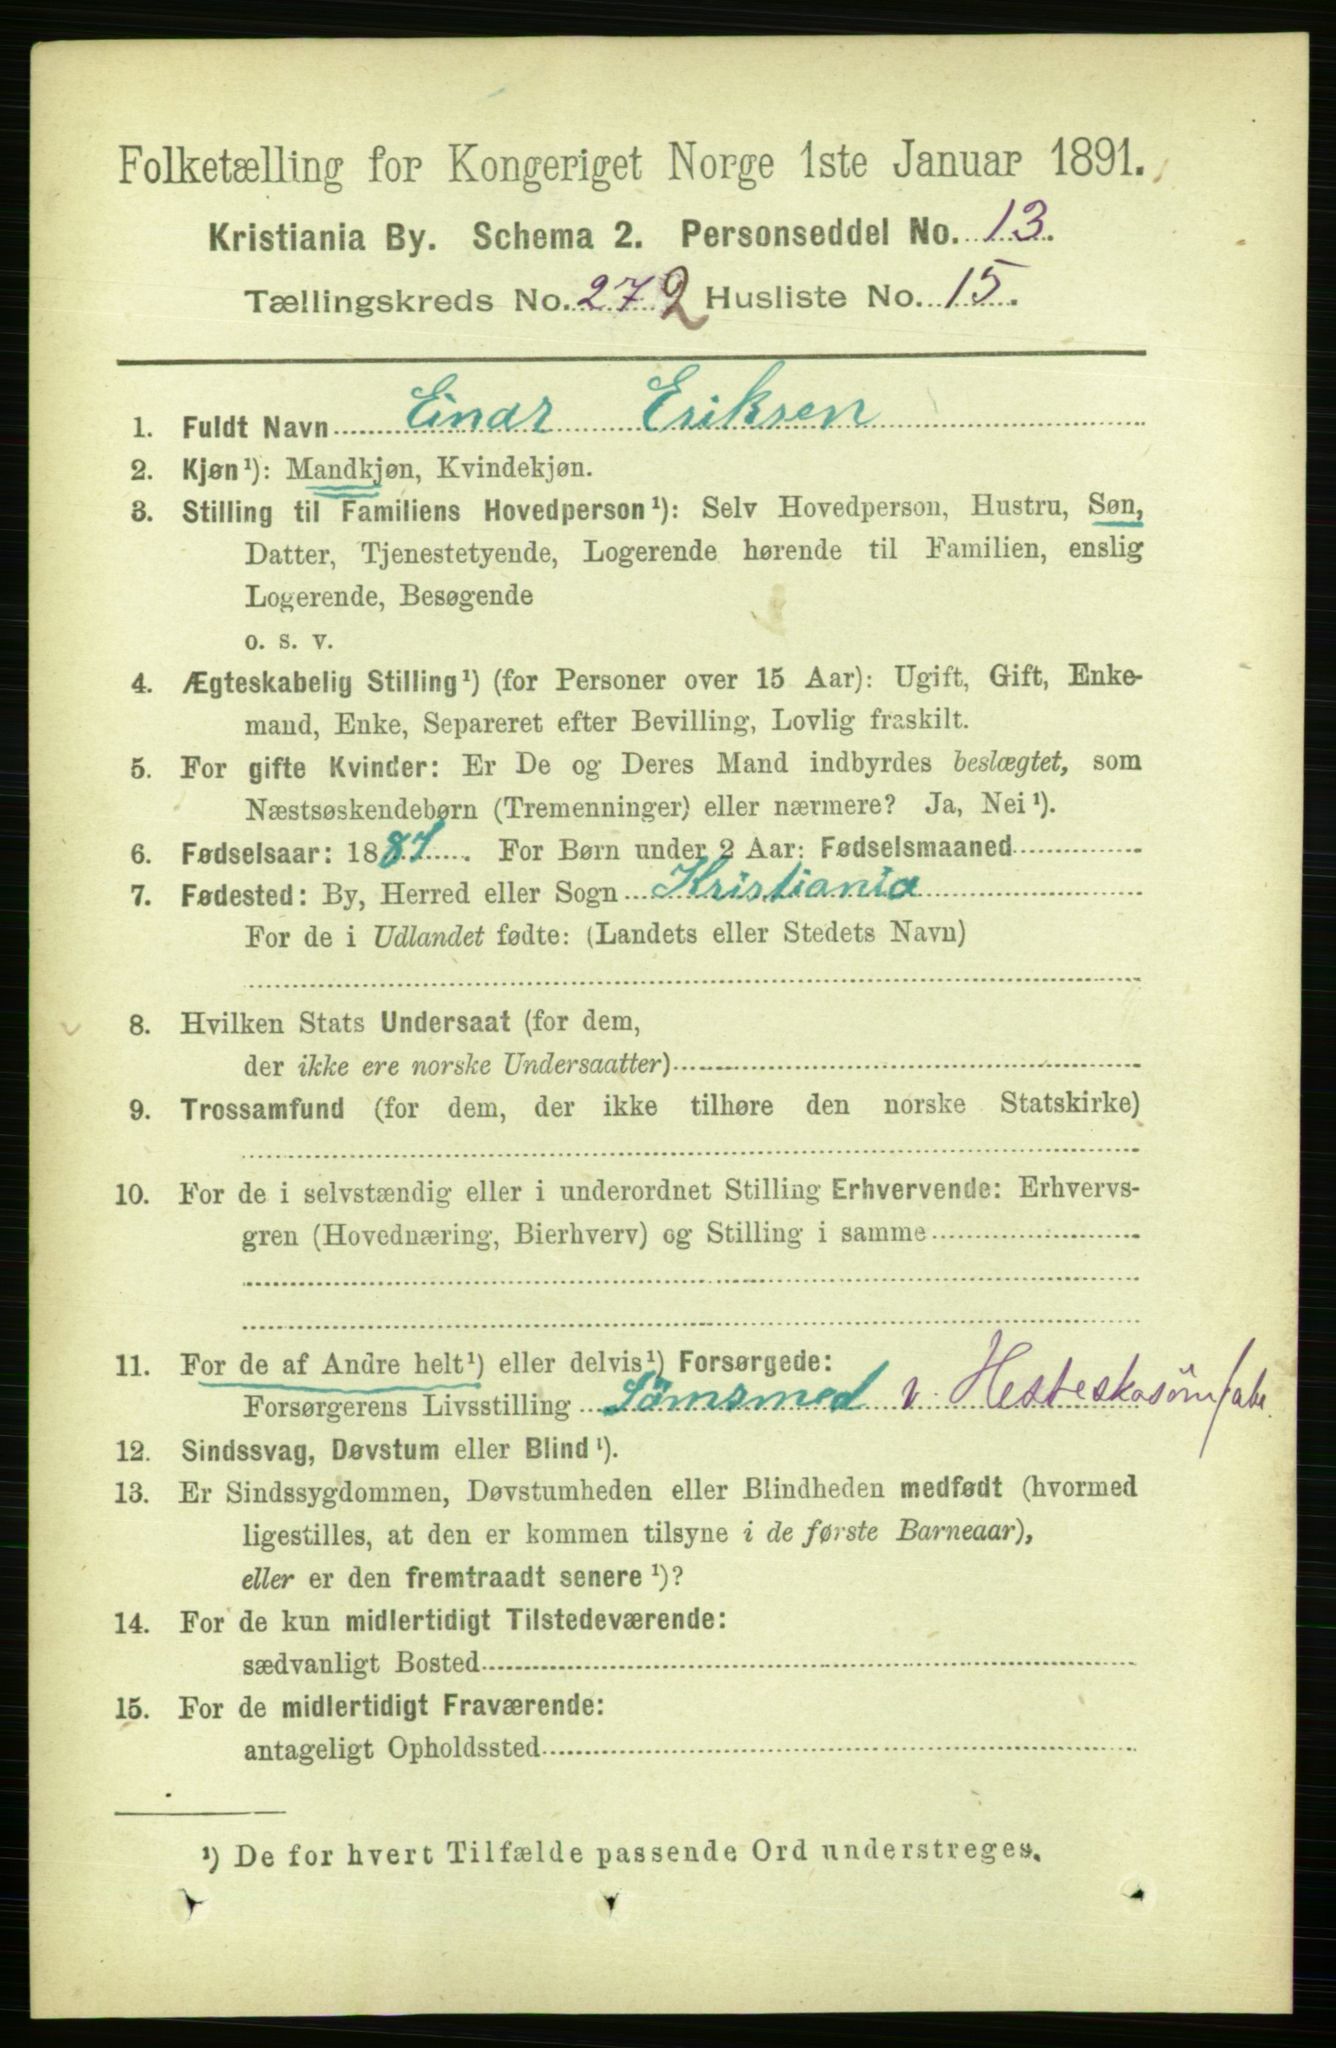 Folketælling for Kongeriget Norge 1ste Januar 1891.
Kristiania By. Schema 2. Personseddel No. 13.
Tællingskreds No. 272 Husliste No. 15.
1. Fuldt Navn Einar Eriksen
2. Kjøn¹): Mandkjøn, Kvindekjøn.
3. Stilling til Familiens Hovedperson¹): Selv Hovedperson, Hustru, Søn,
Datter, Tjenestetyende, Logerende hørende til Familien, enslig
Logerende, Besøgende
o. s. v.
4. Ægteskabelig Stilling¹) (for Personer over 15 Aar): Ugift, Gift, Enke-
mand, Enke, Separeret efter Bevilling, Lovlig fraskilt.
5. For gifte Kvinder: Er De og Deres Mand indbyrdes beslægtet, som
Næstsøskendebørn (Tremenninger) eller nærmere? Ja, Nei¹).
6. Fødselsaar: 1887. For Børn under 2 Aar: Fødselsmaaned
7. Fødested: By, Herred eller Sogn Kristiania
For de i Udlandet fødte: (Landets eller Stedets Navn)
8. Hvilken Stats Undersaat (for dem,
der ikke ere norske Undersaatter)
9. Trossamfund (for dem, der ikke tilhøre den norske Statskirke)
10. For de i selvstændig eller i underordnet Stilling Erhvervende: Erhvervs-
gren (Hovednæring, Bierhverv) og Stilling i samme
11. For de af Andre helt¹) eller delvis¹) Forsørgede:
Forsørgerens Livsstilling Sömsmed v. Hesteskosömfabr.
12. Sindssvag, Døvstum eller Blind¹).
13. Er Sindssygdommen, Døvstumheden eller Blindheden medfødt (hvormed
ligestilles, at den er kommen tilsyne i de første Barneaar),
eller er den fremtraadt senere¹)?
14. For de kun midlertidigt Tilstedeværende:
sædvanligt Bosted
15. For de midlertidigt Fraværende:
antageligt Opholdssted
¹) De for hvert Tilfælde passende Ord understreges.